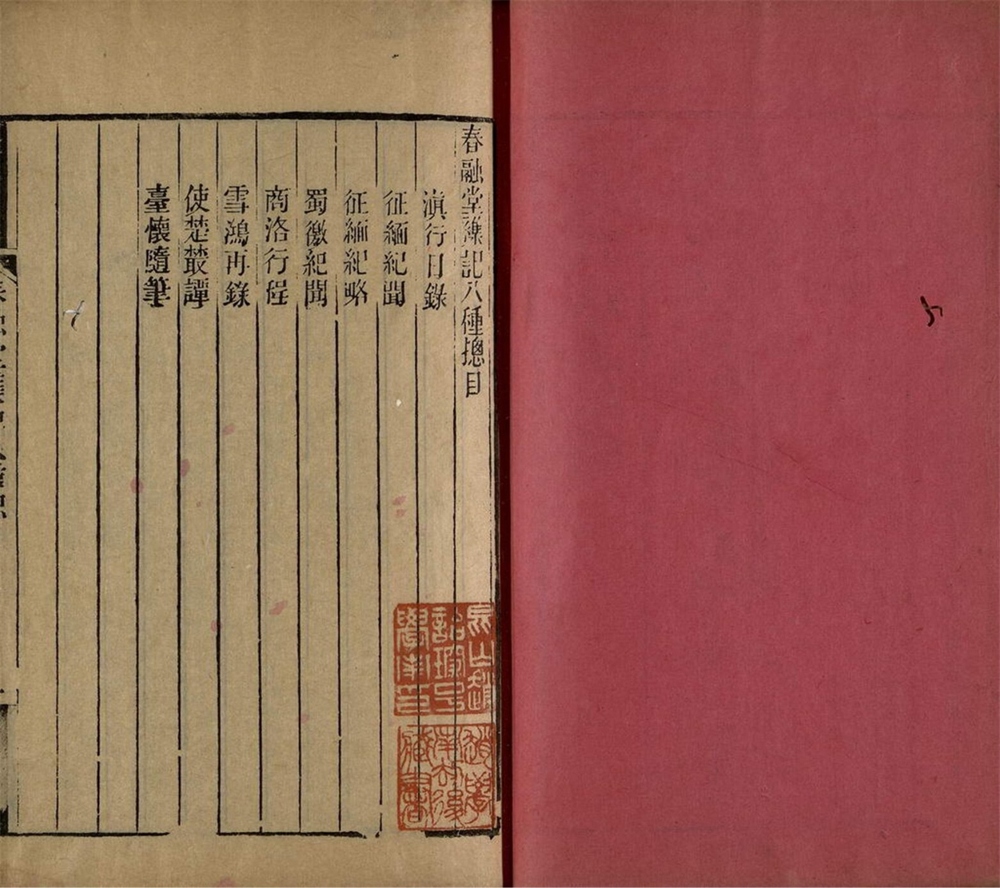 春融堂雜記八種摠目
滇行日錄
征緬紀聞
征緬紀略
蜀徼紀聞
商洛行程
雪鴻再錄
使楚叢譚
臺懷隨筆